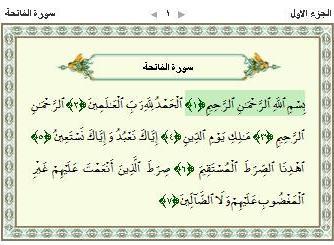 الجزء الأول ١ سورة الفاتحة
سورة الفاتحة
بِسْمِ ٱللَّهِ ٱلرَّحْمَٰنِ ٱلرَّحِيمِ ﴿١﴾ ٱلْحَمْدُ لِلَّهِ رَبِّ ٱلْعَٰلَمِينَ ﴿٢﴾ ٱلرَّحْمَٰنِ
ٱلرَّحِيمِ ﴿٣﴾ مَٰلِكِ يَوْمِ ٱلدِّينِ ﴿٤﴾ إِيَّاكَ نَعْبُدُ وَإِيَّاكَ نَسْتَعِينُ ﴿٥﴾
ٱهْدِنَا ٱلصِّرَٰطَ ٱلْمُسْتَقِيمَ ﴿٦﴾ صِرَٰطَ ٱلَّذِينَ أَنْعَمْتَ عَلَيْهِمْ غَيْرِ
ٱلْمَغْضُوبِ عَلَيْهِمْ وَلَا ٱلضَّآلِّينَ ﴿٧﴾